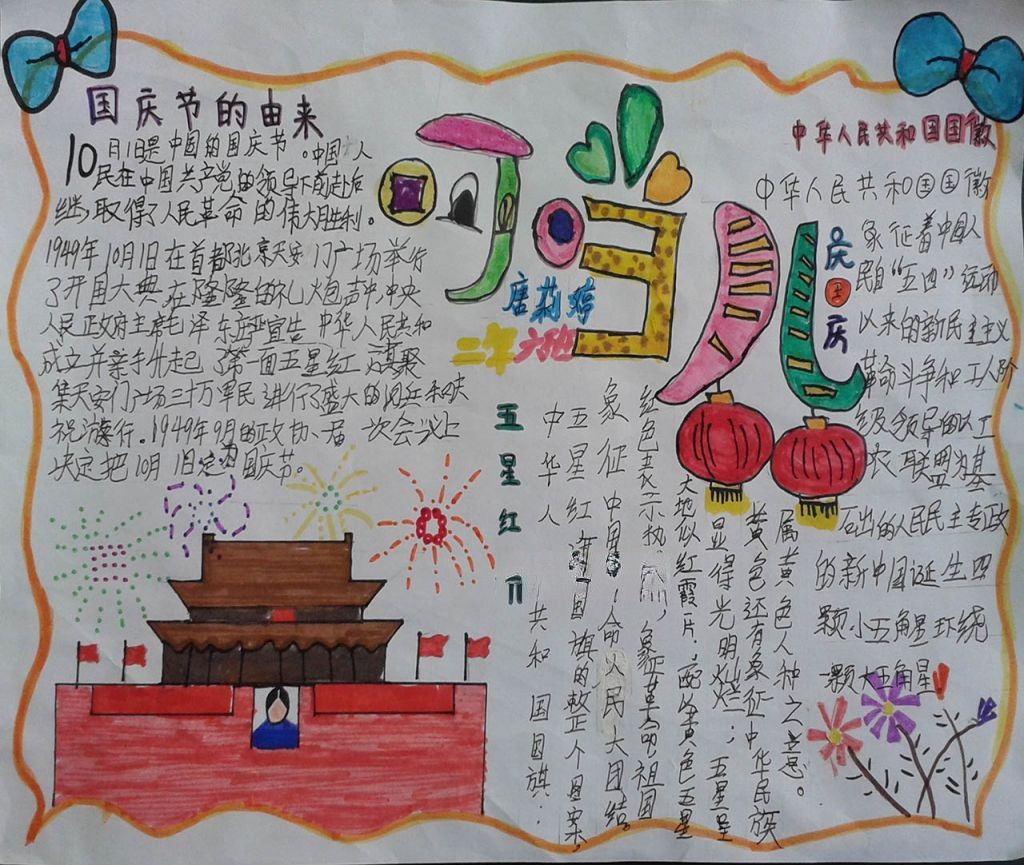 国庆节的由来
10月1日是中国的国庆节。中国人
民在中国共产党的领导下前赴后
继,取得了人民革命的伟大胜利。
1949年10月1日在首都北京天安门广场举行
了开国大典在隆隆的礼炮声中,中央
人民政府主席毛泽东严宣告中华人民共和
成立并亲手升起了第一面五星红
集天安门广场三十万军民进行了盛大的阅兵和庆
祝游行。1949年9月的政协一届一次会议上
决定把10月1日定为国庆节。
唐莉婷
二年六班
五星红
中华人共和国国旗:
五星红 国旗的整个图案,
象征中国 人民大团结。
红色表示热 ,象征革命,祖国
大地似红霞片,配以黄色五星
显得光明灿烂;五星呈
黄色还有象征中华民族
属黄色人种之意。
庆国庆
中华人民共和国国徽
中华人民共和国国徽
象征着中国人
民自“五四”运动
以来的新民主主义
革命斗争和工人阶
级领导的以工
农联盟为基
石出的人民民主专政
的新中国诞生四
颗小五角星环绕
一颗大五角星!